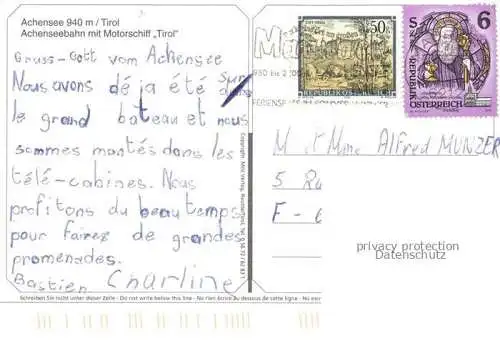 Achensee 940 m / Tirol
Achenseebahn mit Motorschiff „Tirol"
Gruss-Gott vom Achensee
Nous avons déja été sur
dans
le grand bateau et nous
sommes montés dans les
télé-cabines. Nous
profitons du beau temps
pour faires de grandes
promenades.
Bastien Charline
Schreiben Sie nicht unter dieser Zeile - Do not write below this line - Ne rien écrire au dessous de cette ligne
50
REPUBLIK ÖSTERREICH
S 6
REPUBLIK
ÖSTERREICH
M et Mme Alfred MUNZER
5
F-6
privacy protection
Datenschutz